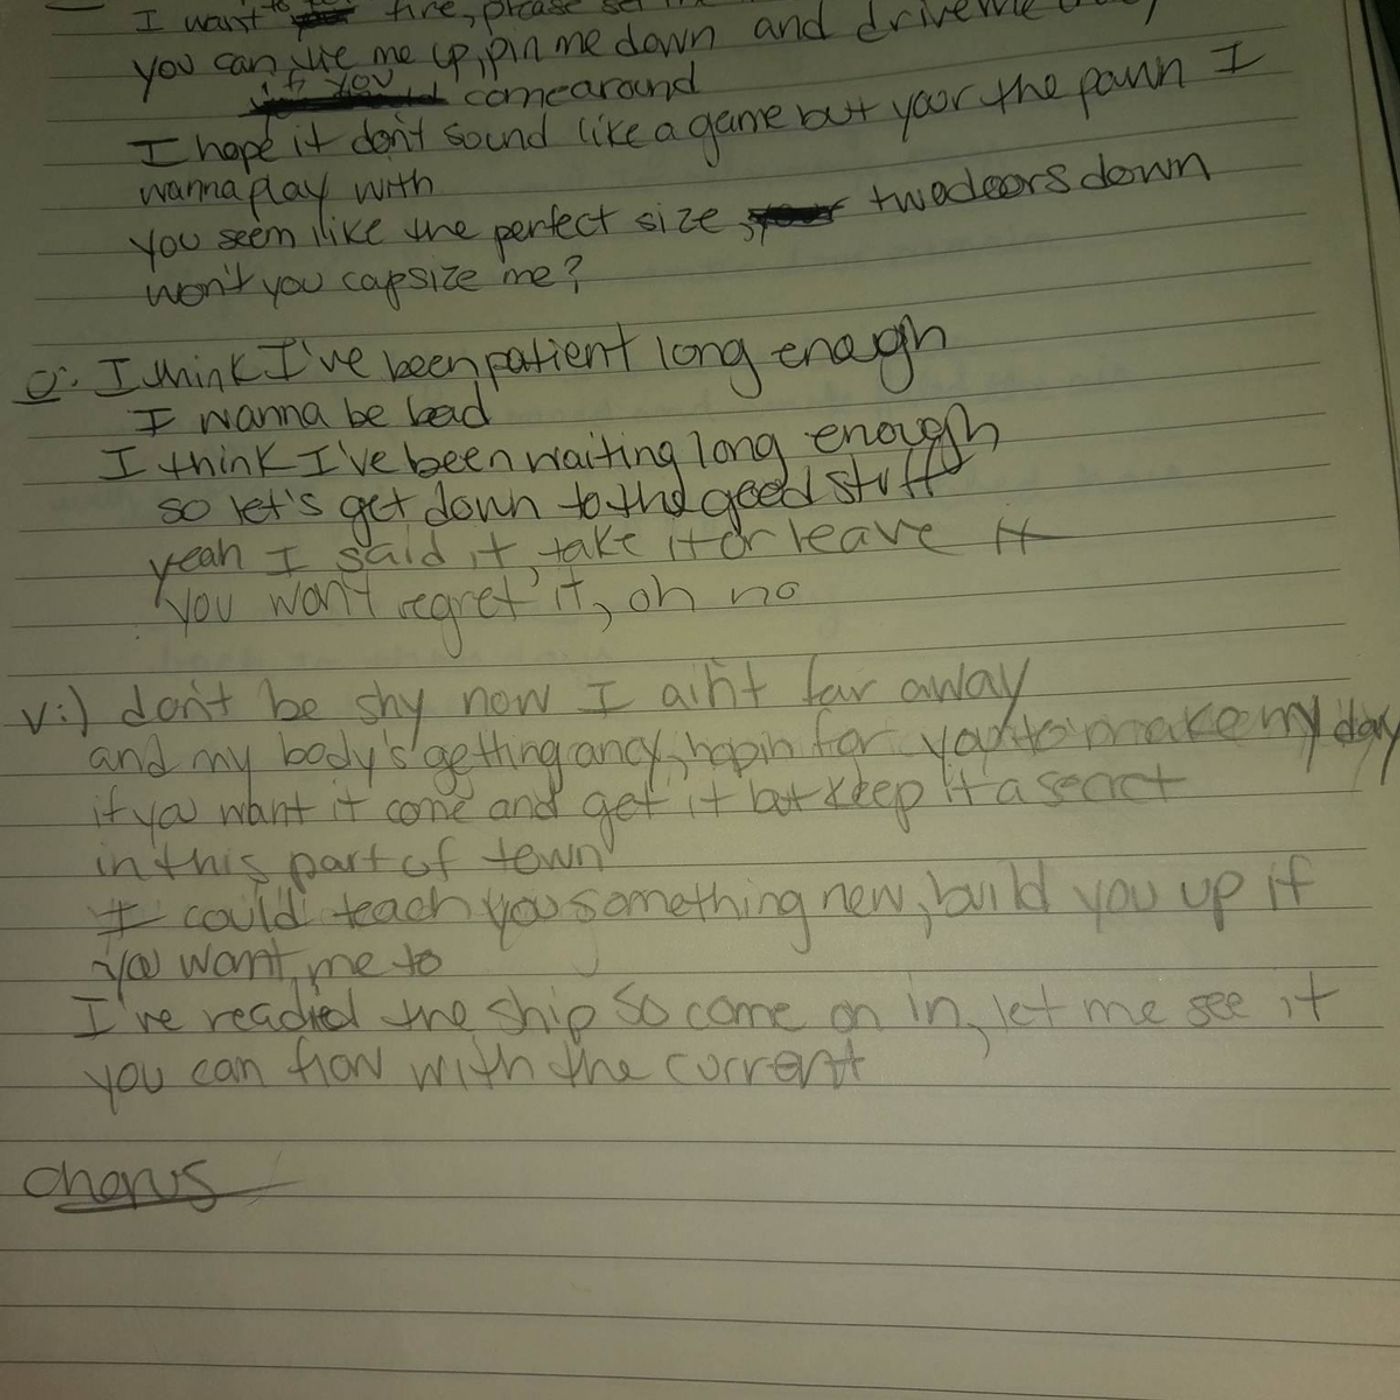 I want to fire, please set
you can tie me up, pin me down and drive me
if you come around
I hope it don't sound like a game but your the pawn I
wanna play with
you seem like the perfect size, two doors down
won't you capsize me?
C: I think I've been patient long enough
I wanna be bad
I think I've been waiting long enough
so let's get down to the good stuff
yeah I said it, take it or leave it
you won't regret it, oh no
V:) don't be shy now I ain't far away
and my body's getting ancy, hopin for you to make my day
if you want it come and get it but keep it a secret
in this part of town
I could teach you something new, build you up if
you want me to
I've readied the ship so come on in, let me see it
you can flow with the current
Chorus